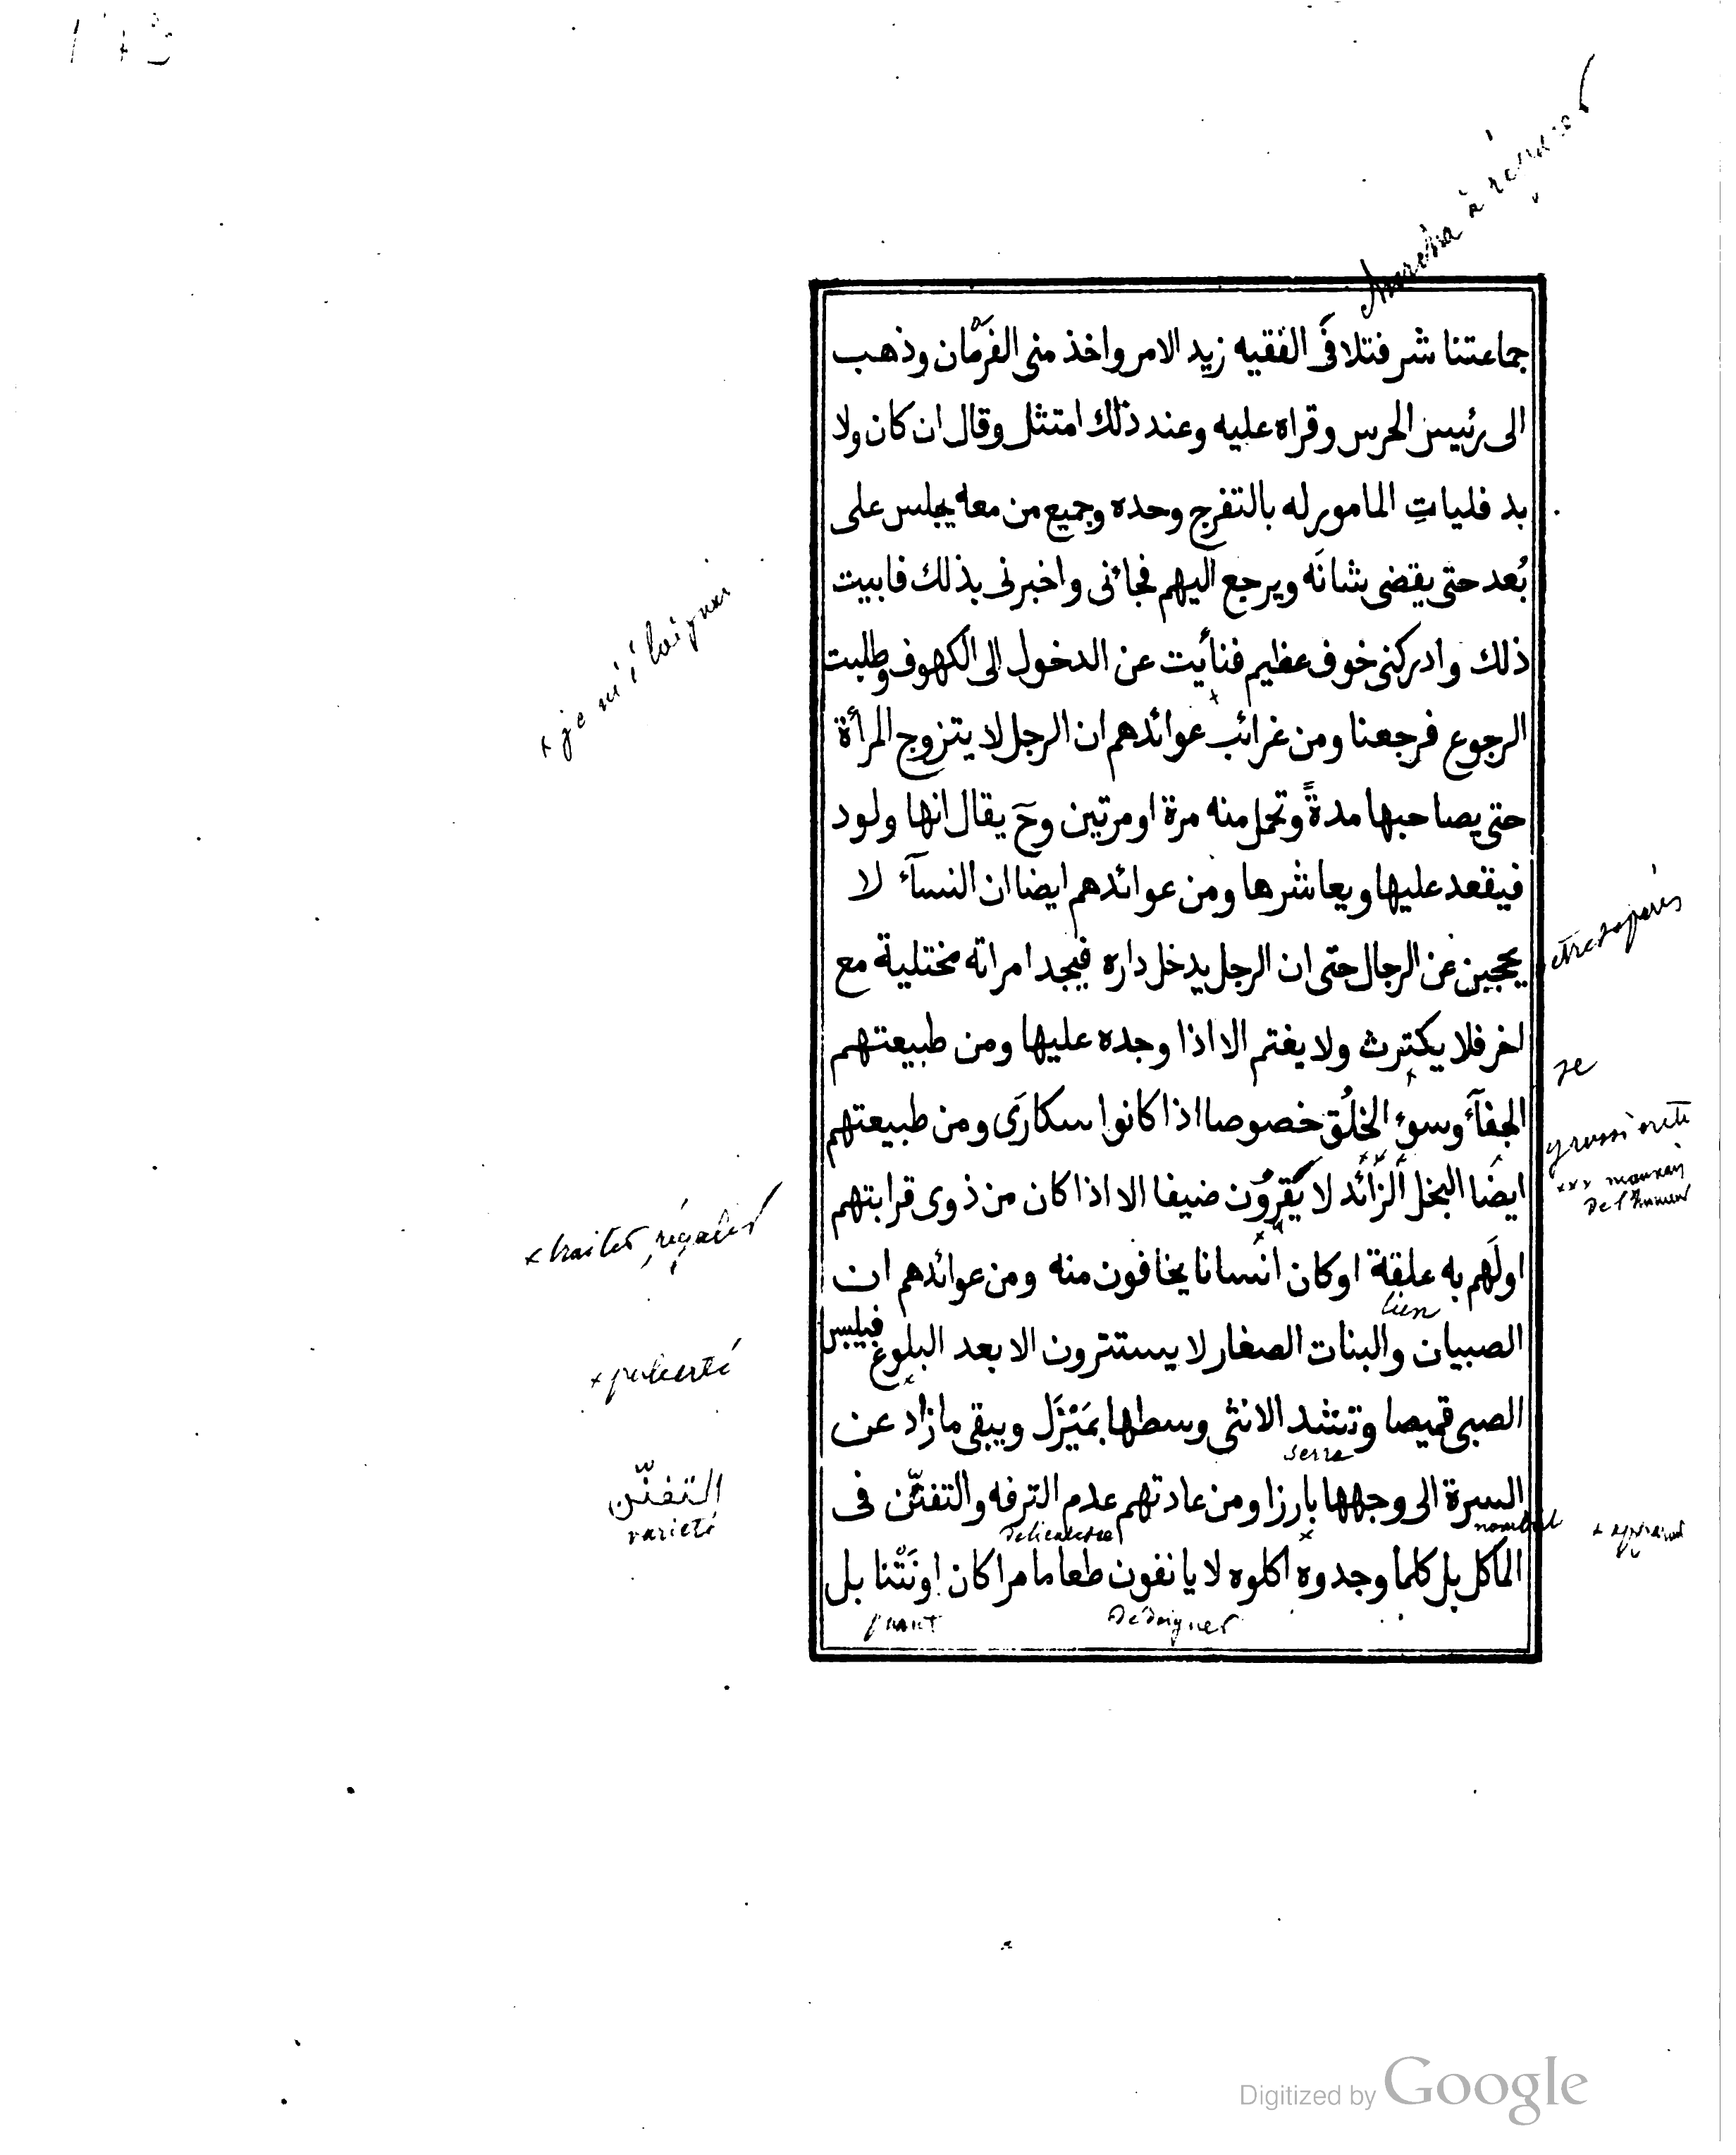 جماعتنا شر فتلافى الفقيه زيد الامر واخذ منى الفَرَمَان وذهب
الى رئيس الحرس وقراه عليه وعند ذلك امتثل وقال ان كان ولا
بد فلياتِ المامور له بالتفرج وحده وجميع من معه يجلس على
بُعد حتى يقضى شانَه ويرجع اليهم فجاءنى واخبرنى بذلك فابيت
ذلك وادركنى خوف عظيم فنأيت عن الدخول الى الكهوف وطلبت
الرجوع فرجعنا ومن غرائب عوائدهم ان الرجل لا يتزوج المرأة
حتى يصاحبها مدةً وتحمل منه مرة او مرتين وحَ يقال انها ولود
فيقعد عليها ويعاشرها ومن عوائدهم ايضا ان النسآء لا
يحجبن عن الرجال حتى ان الرجل يدخل داره فيجد امراته مختلية مع
اخر فلا يكترث ولا يغتم الا اذا وجده عليها ومن طبيعتهم
الجفآء وسوء الخلُق خصوصا اذا كانوا سكارَى ومن طبيعتهم
ايضا البخل الزائد لا يَقرُون ضيفا الا اذا كان من ذوى قرابتهم
او لَهم به علقة او كان انسانا يخافون منه ومن عوائدهم ان
lien
الصبيان والبنات الصغار لا يستترون الا بعد البلوغ فيلبس
الصبى قميصا وتشد الانثى وسطها بمَيْزَل ويبقى ما زاد عن
serre
السرة الى وجهها بارزا ومن عادتهم عدم الترفه والتفنّن فى
nombril
المأكل بل كلما وجدوه اكلوه لا يانفون طعاما مرا كان او نَتْنا بل
puant
dédaigner
+ je m'éloignai
+ traiter, régaler
+ puberté
التفنّن
varieté
se
grossiereté
xxx mauvais